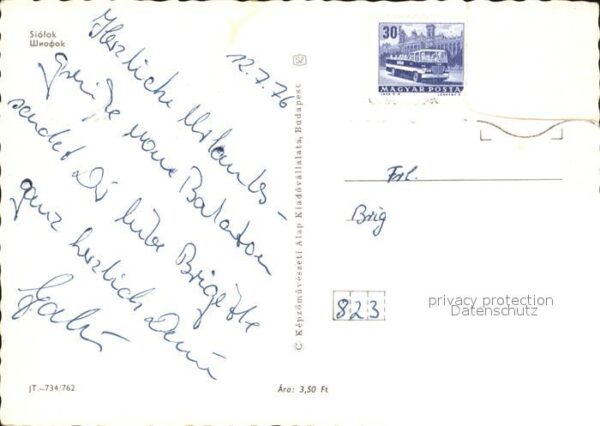 Siófok
Шиофок
12.7.76
Herzliche Urlaubs-
grüße vom Balaton
sendet Dir liebe Brigitte
ganz herzlich Deine
30f
MAGYAR POSTA
Frl.
Brig
823
privacy protection
Datenschutz
© Képzőművészeti Alap Kiadóvállalata, Budapest
JT.—734/762
Ára: 3,50 Ft